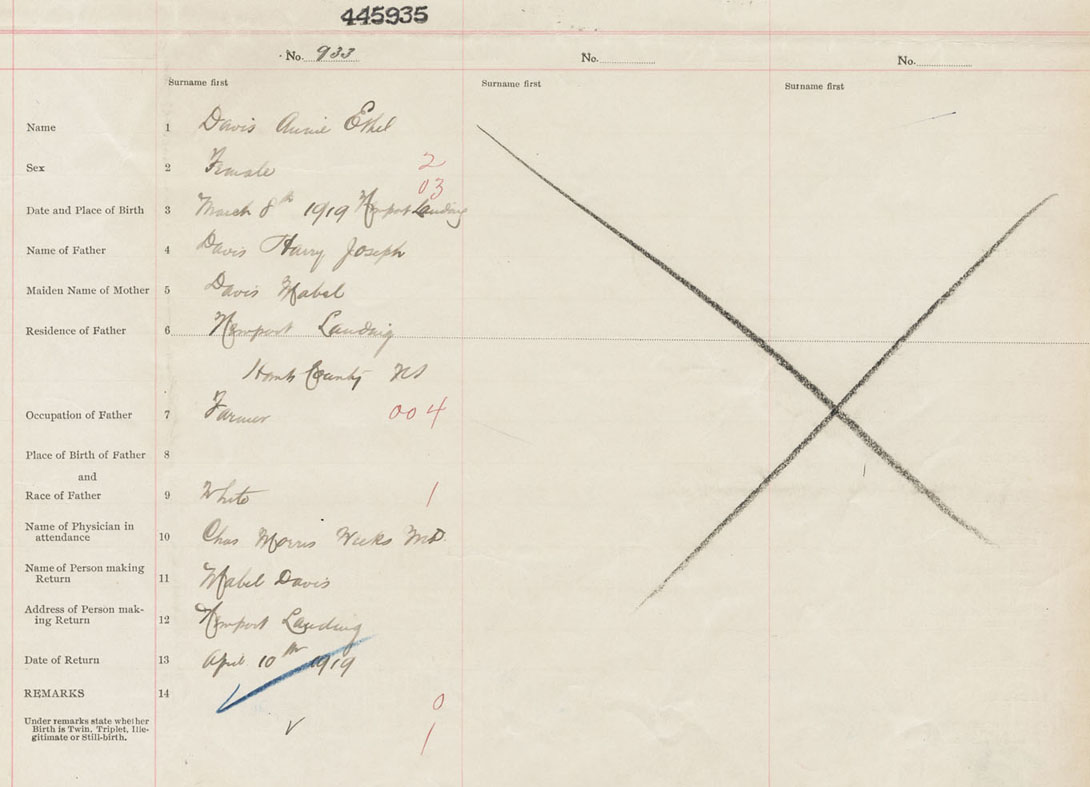 445935
No. 933 No. No.
Surname first Surname first Surname first
Name 1 Davis Annie Ethel
Sex 2 Female 2
03
Date and Place of Birth 3 March 8th 1919 Newport Landing
Name of Father 4 Davis Harry Joseph
Maiden Name of Mother 5 Davis Mabel
Residence of Father 6 Newport Landing
Hants County NS
Occupation of Father 7 Farmer 004
Place of Birth of Father 8
and
Race of Father 9 White 1
Name of Physician in
attendance 10 Chas Morris Weeks MD.
Name of Person making
Return 11 Mabel Davis
Address of Person mak-
ing Return 12 Newport Landing
Date of Return 13 April 10th 1919
REMARKS 14 0
Under remarks state whether
Birth is Twin, Triplet, Ille-
gitimate or Still-birth. 1